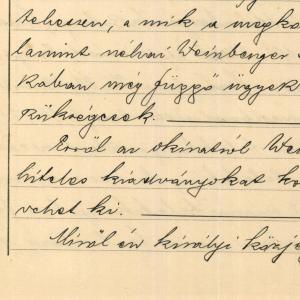 tehessen, a mik a megko
lamint néhai Weinberger
kában még függő ügyek
szükségesek.
Erről az okiratról Wei
hiteles kiadványokat
vehet ki.
Miről én királyi közje